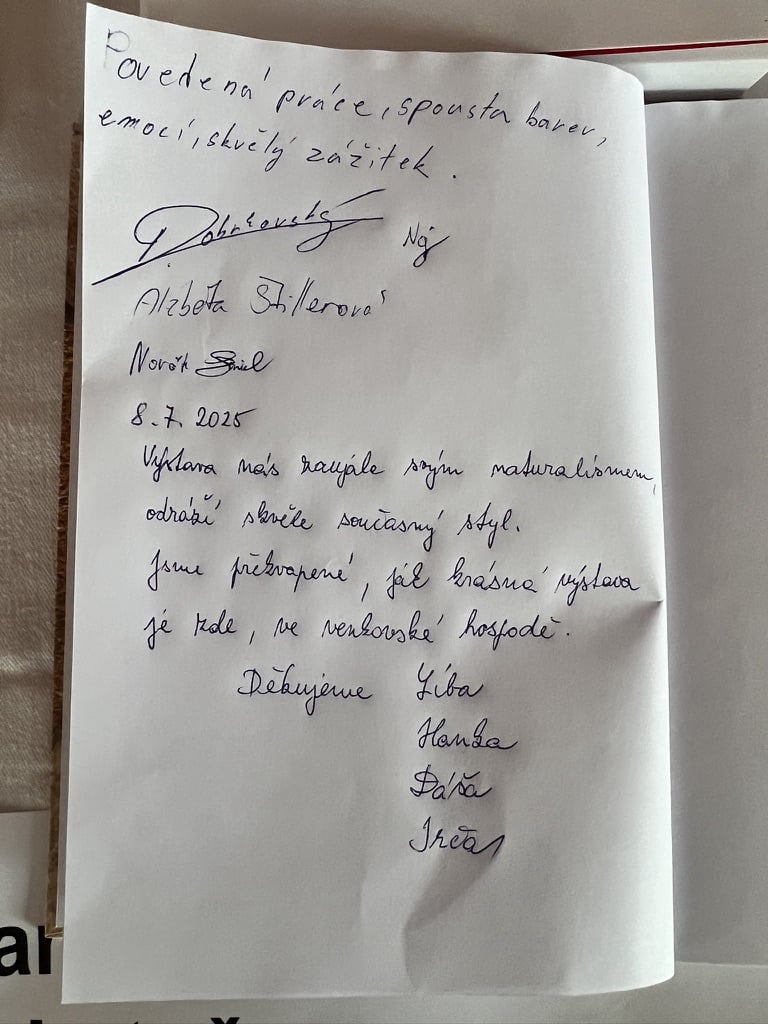 Povedená práce, spousta barev,
emocí, skvělý zážitek.
Dobrkovský
Alžběta Stillerová
Novák
8. 7. 2025
Výstava nás zaujále svým naturalismem,
odráží skvěle současný styl.
Jsme překvapené, jak krásná výstava
je zde, ve venkovské hospodě.
Děkujeme Líba
Hanka
Dáša
Irča
ar